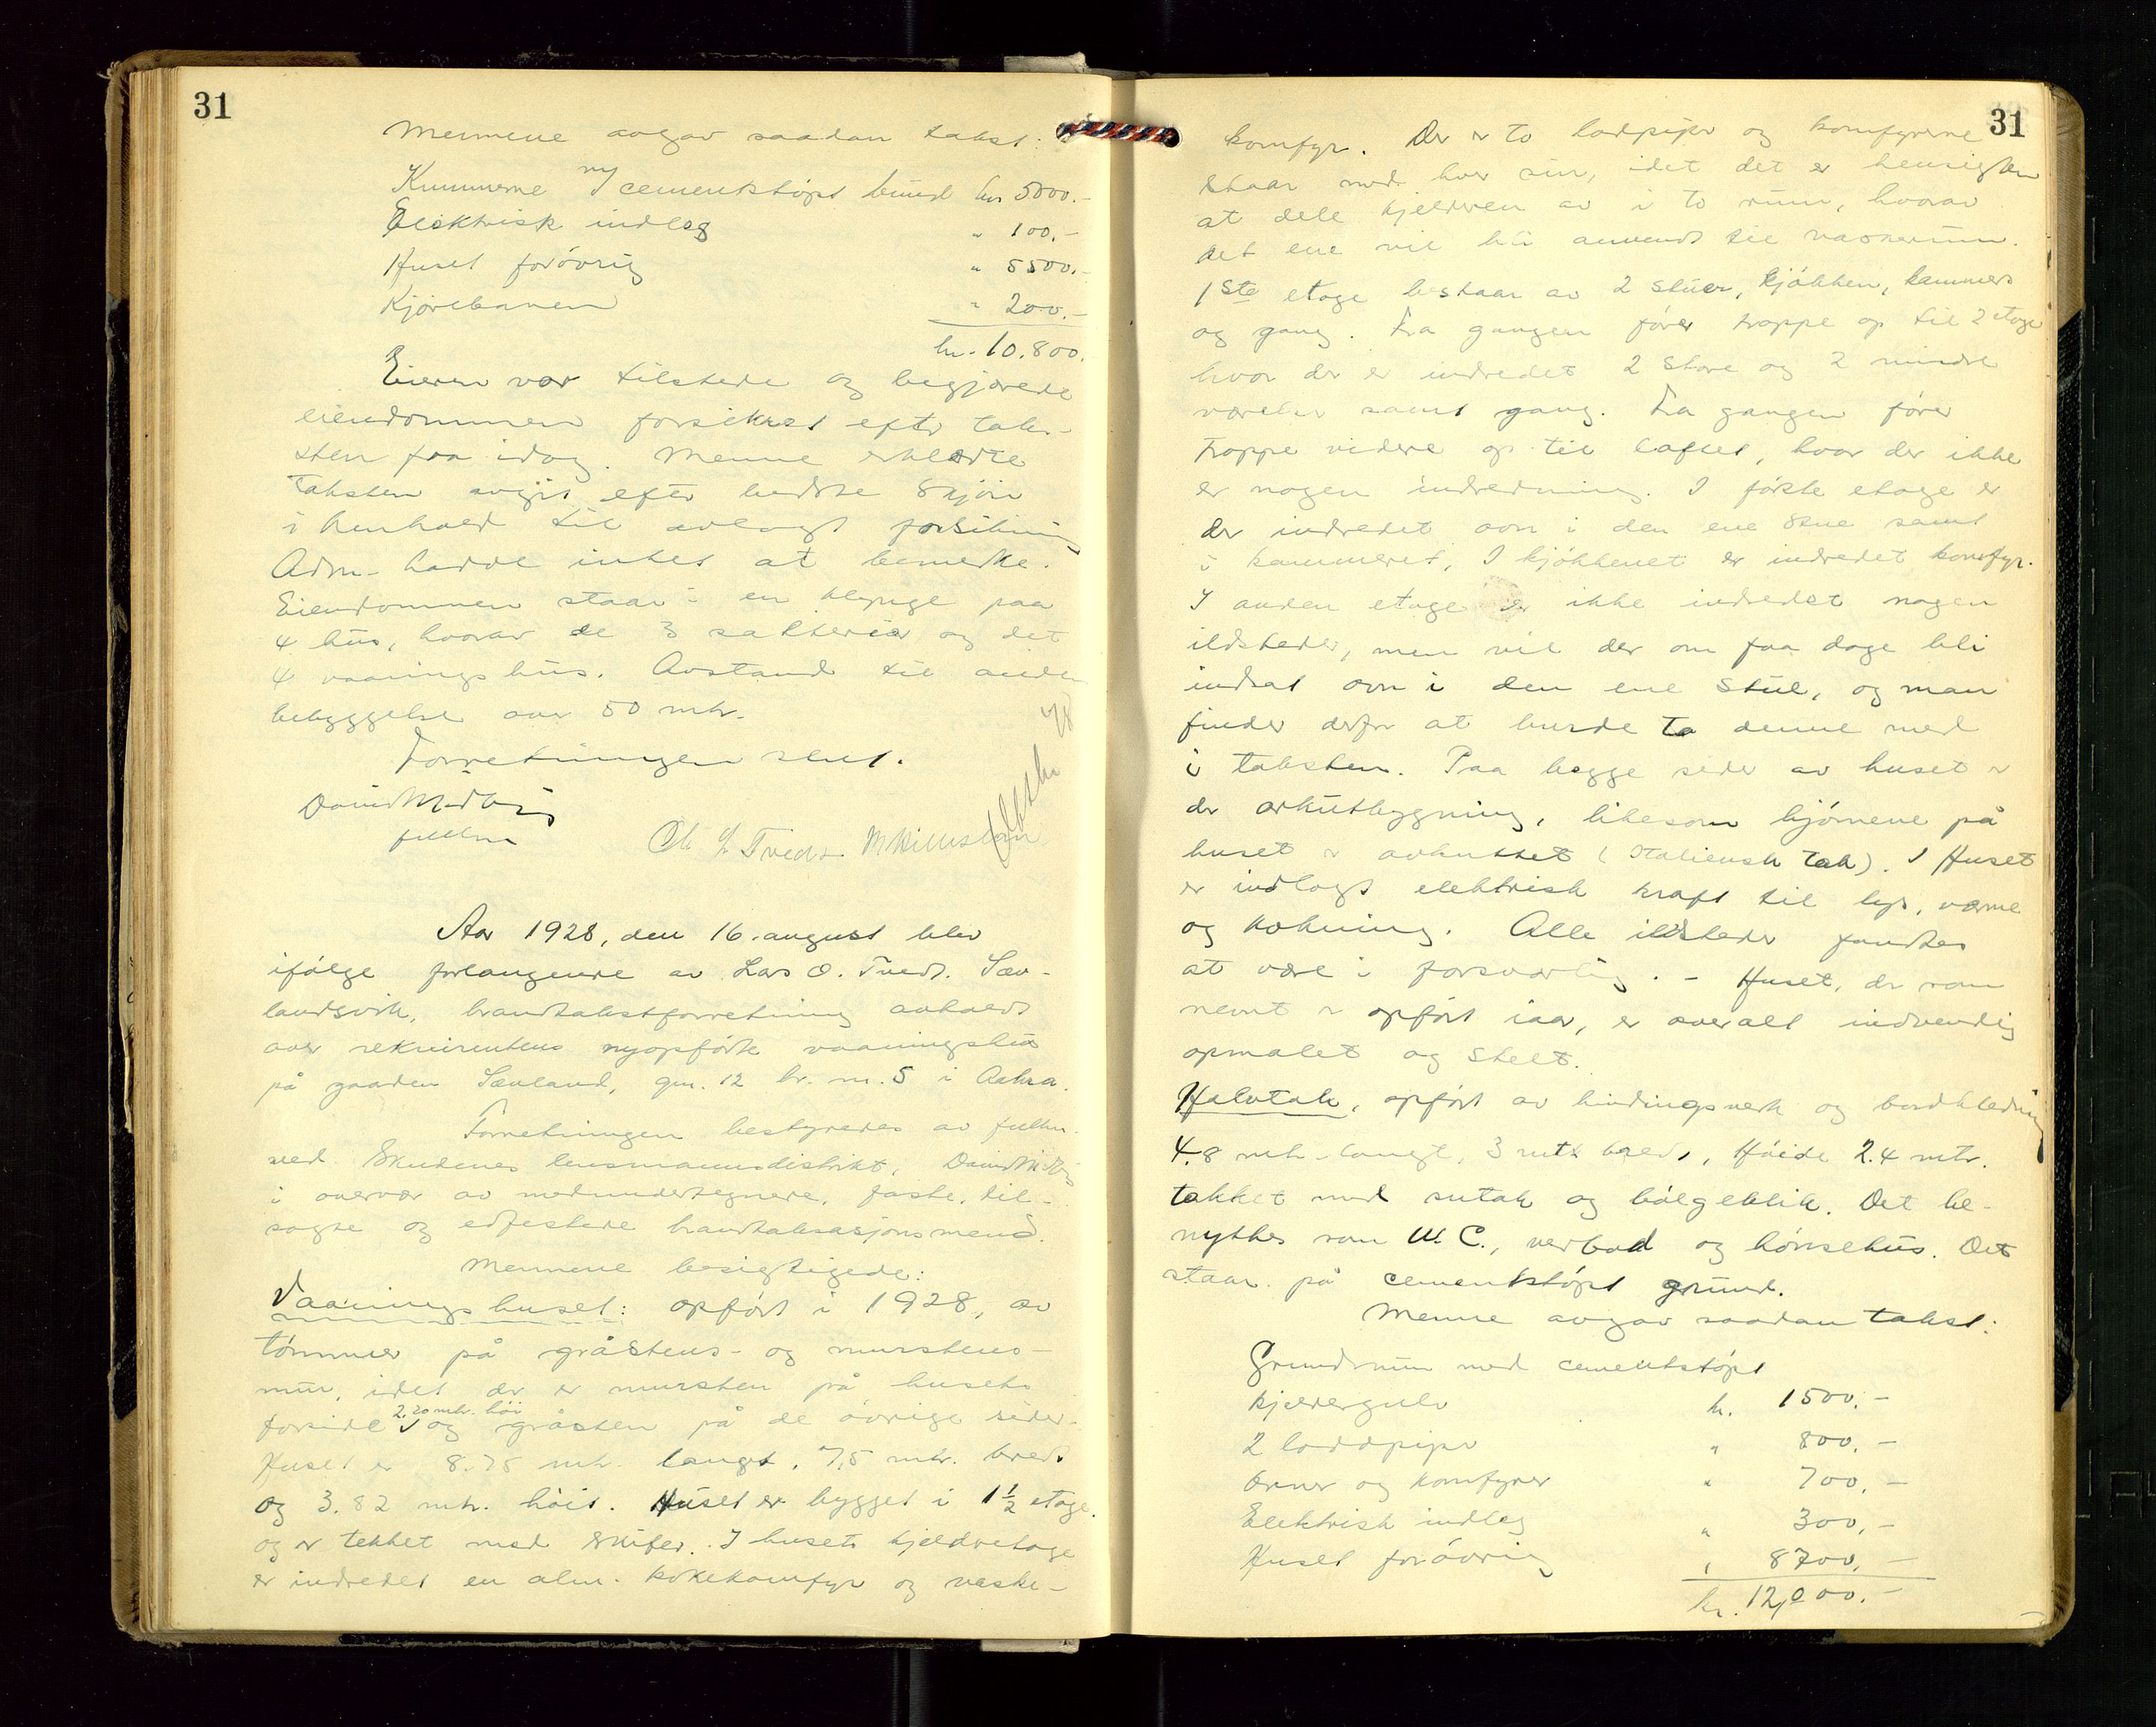 31
Mennene avgav saadan takst:
Kummerne m/ cementstøpt bund kr 5000.-
Elektrisk indlæg " 100.-
Huset forøvrig " 5500.-
Kjørebanen " 200.-
kr. 10.800.
Eieren var tilstede og begjærede
eiendommen forsikret efter tak-
sten fra idag. Menne erklærte
taksten avgit efter bedste skjøn
i henhold til avlagt forsikring
Adm. hadde intet at bemerke.
Eiendommen staar i en klynge paa
4 hus, hvorav de 3 salterier og det
4 vaaningshus. Avstand til anden
bebyggelse over 50 mtr.
Forretningen slut.
David
fullm
O. Tvedt
Aar 1928, den 16. august blev
ifølge forlangende av Lars O. Tvedt, Sæv-
landsvik, brandtakstforretning avholdt
over rekvirentens nyopførte vaaningshus
på gaarden Sævland, gnr. 12 br. nr. 5 i Aakra.
Forretningen bestyredes av fullm.
ved Skudenes lensmannsdistrikt, David
i overvær av medundertegnede, faste, til-
sagte og edfestede brandtaksasjonsmend.
Mennene besigtigede:
Vaaningshuset: opført i 1928, av
tømmer på gråstens- og murstens-
mur, idet der er mursten på husets
forside 2.20 mtr. høi og gråsten på de øvrige sider.
Huset er 8.75 mtr. langt, 7,5 mtr. bredt
og 3.82 mtr. høit. Huset er bygget i 1 1/2 etage.
og er tekket med skifer. I husets kjelderetage
er indredet en alm. kokekomfyr og vaske-
31
komfyr. Der er to lodpiper og komfyrerne
staar med hver sin, idet det er hensigten
at dele kjelderen av i to rum, hvorav
det ene vil bli anvendt til vaskerum.
1ste etage bestaar av 2 stuer, kjøkken, kammers
og gang. Fra gangen fører trappe op til 2 etage
hvor der er indredet 2 store og 2 mindre
værelser samt gang. Fra gangen fører
trappe videre op til loftet, hvor der ikke
er nogen indredning. I første etage er
der indredet ovn i den ene stue samt
i kammeret, I kjøkkenet er indredet komfyr.
I anden etage er ikke indredet nogen
ildsteder, men vil der om faa dage bli
indsat ovn i den ene stue, og man
finder derfor at burde ta denne med
i taksten. Paa begge sider av huset er
der arkutbygning, likesom hjørnene på
huset er avkuttet (Italiensk tak). I Huset
er indlagt elektrisk kraft til lys, varme
og kokning. Alle ildsteder fandtes
at være i forsvarlig. - Huset, der som
nevnt er opført iaar, er overalt indvendig
opmalet og stelt.
Halvtak, opført av bindingsverk og bordkledning
4.8 mtr. langt, 3 mtr bredt, Høide 2.4 mtr.
takket med sutak og bølgeblik. Det be-
nyttes som W.C., vedbod og hønsehus. Det
staar på cementstøpt grund.
Menne avgav saadan takst:
Grundmur med cementstøpt
kjeldergulv kr. 1500.-
2 loddpiper " 800.-
Ovner og komfyrer " 700.-
Elektrisk indlæg " 300.-
Huset forøvrig " 8700.-
kr. 12,000.-